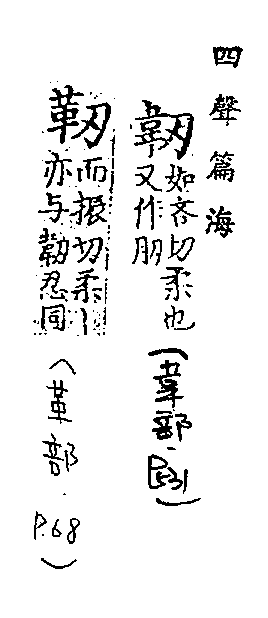 四聲篇海
韌 如吝切柔也
又作肕
(韋部.P.531)
靭 而振切柔〡
亦与韌忍同
(革部.P.68)